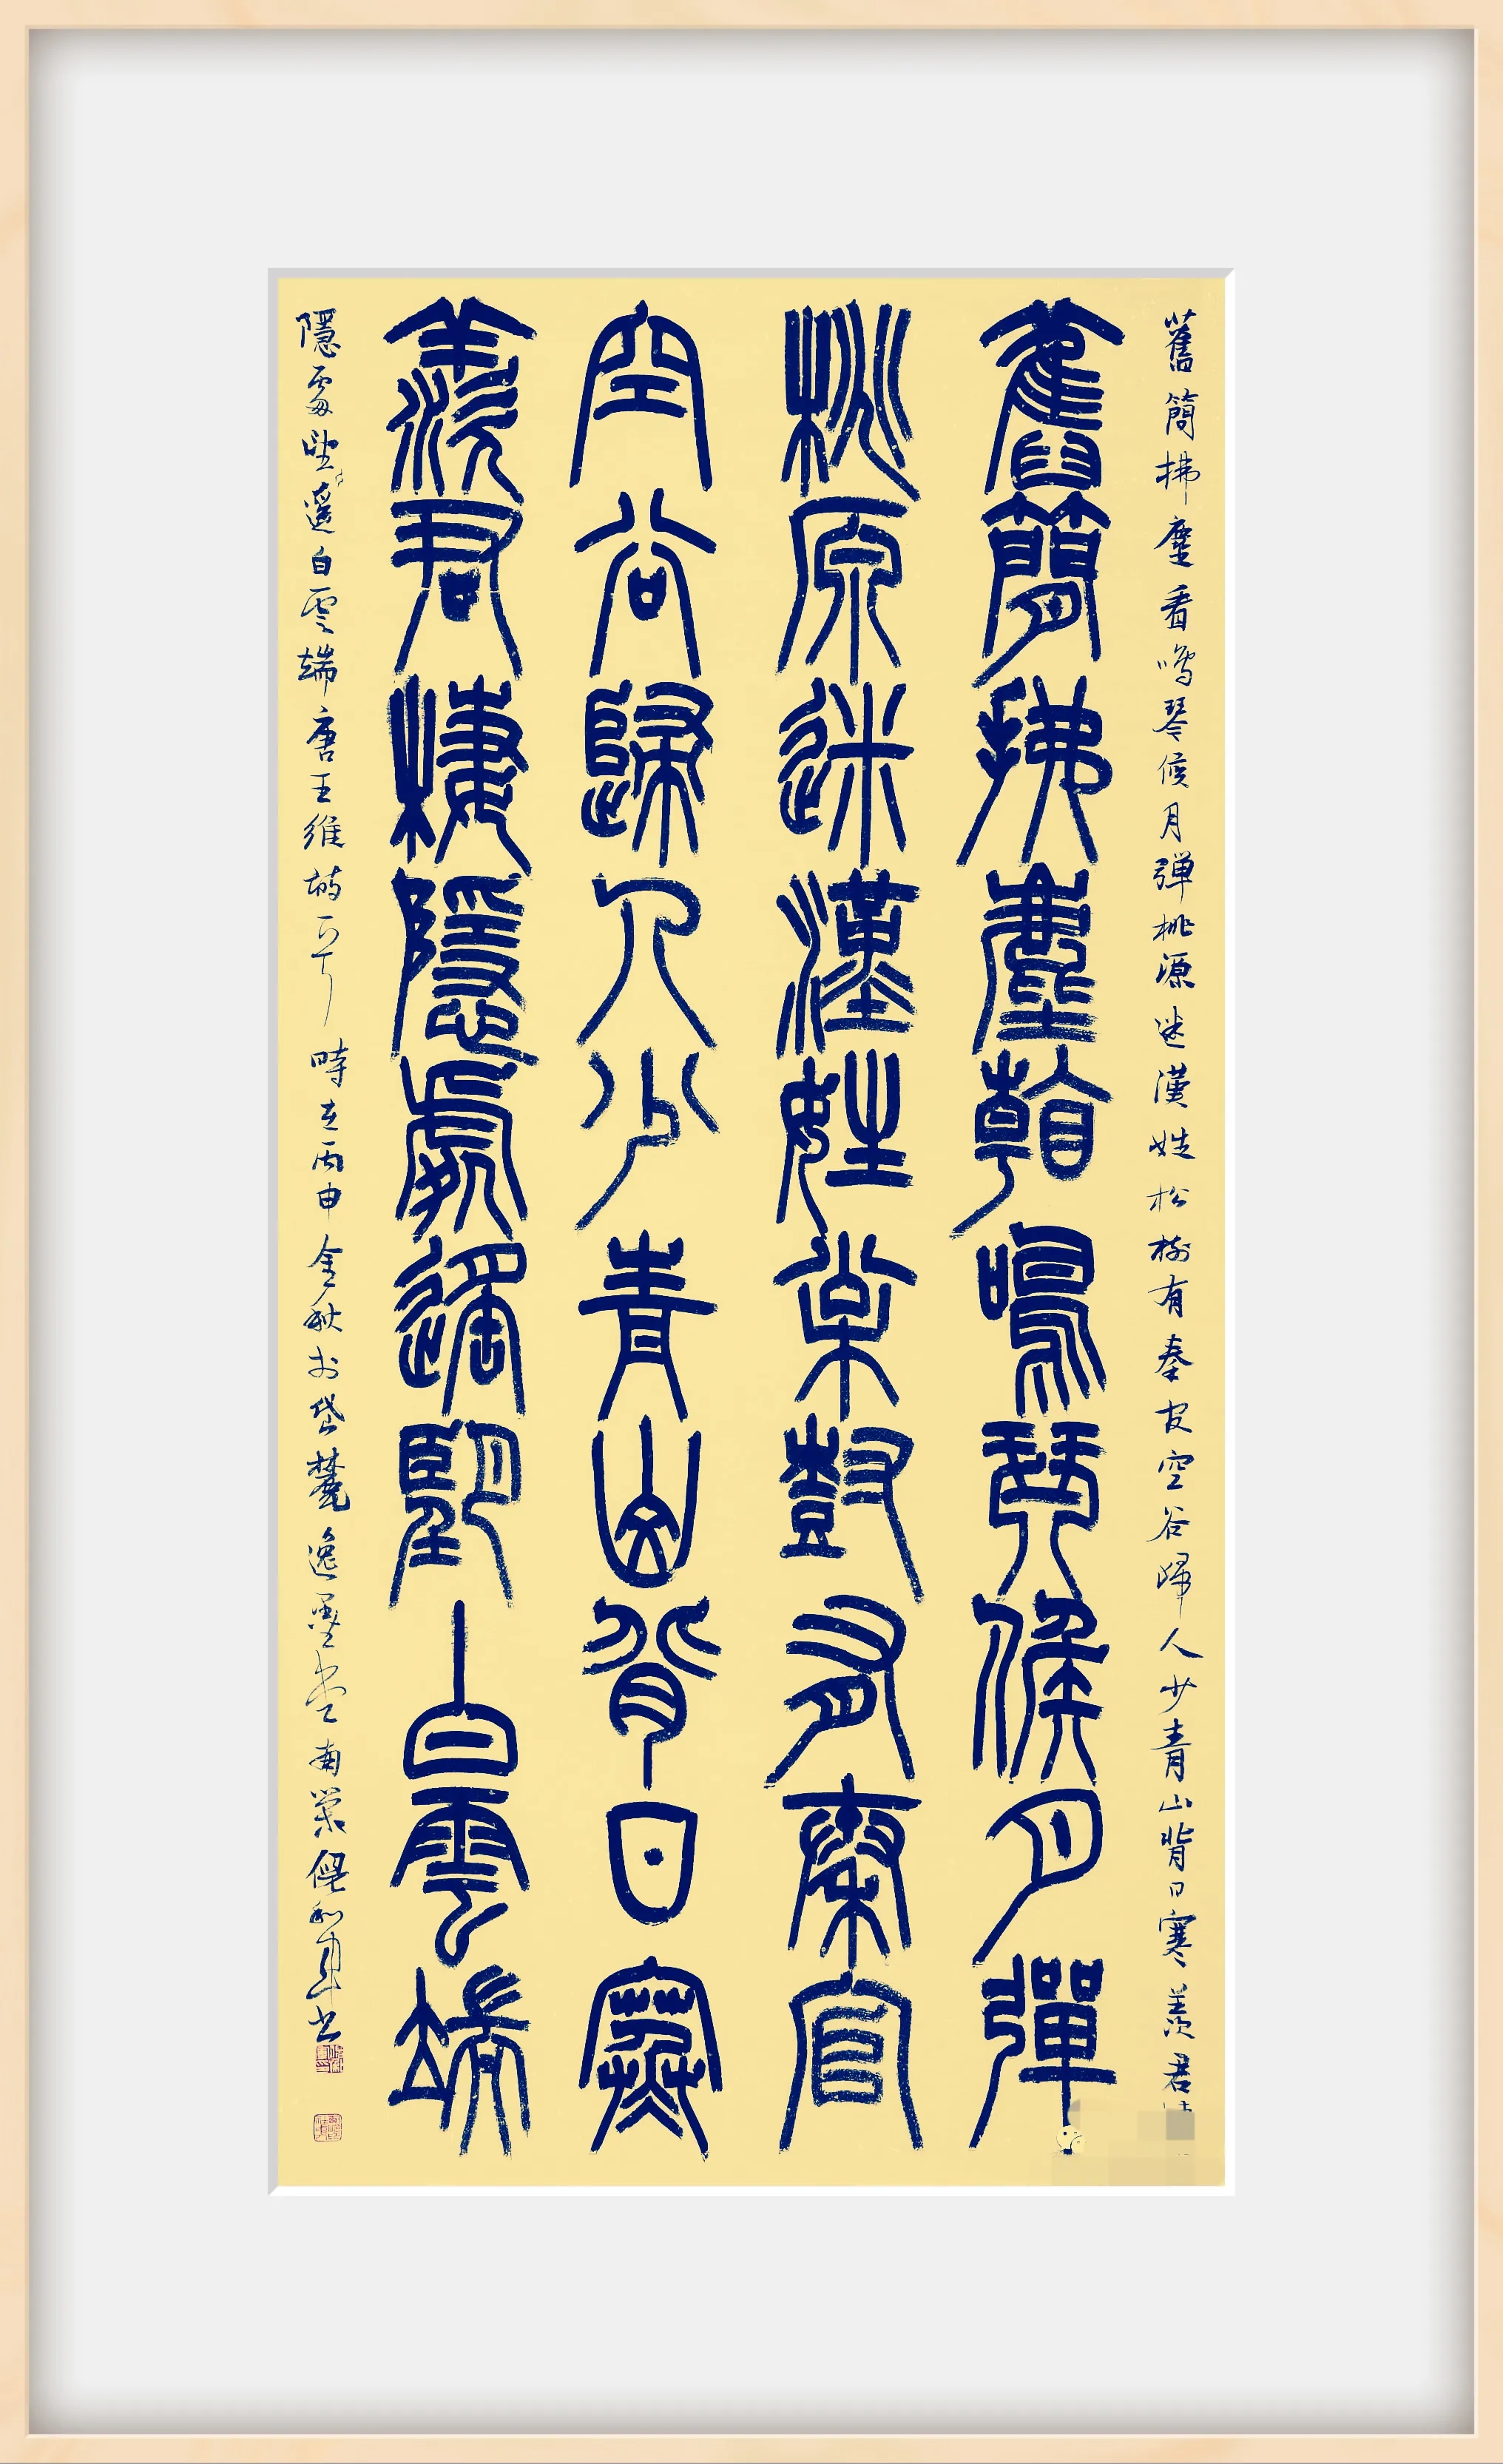 舊簡拂塵看鳴琴候月彈桃源迷漢姓松樹有秦官空谷歸人少青山背日寒羨君
舊簡拂塵看鳴琴候月彈
桃原迷漢姓松尌有秦官
空谷歸人少青山背日寒
羨君棲隱處遙望白雲端
隱處望遙白雲端唐王維詩一首 時在丙申金秋於岱麓逸墨堂南窗倪和軍書